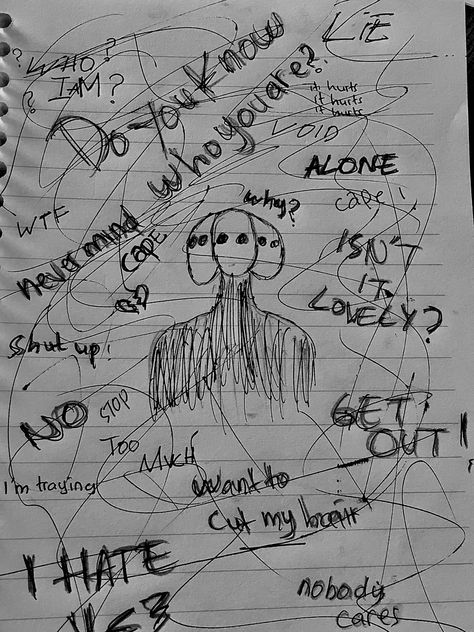 ? WHO ?
? I AM?
Do you know
who you are?
LIE
it hurts
it hurts
it hurts
VOID
ALONE
cape!
WTF
never mind
CAPE
why?
ISN'T
IT
LOVELY?
shut up!
NO
STOP
TOO
MUCH
GET
OUT!
I'm traying
want to
cut my
I HATE
nobody
cares